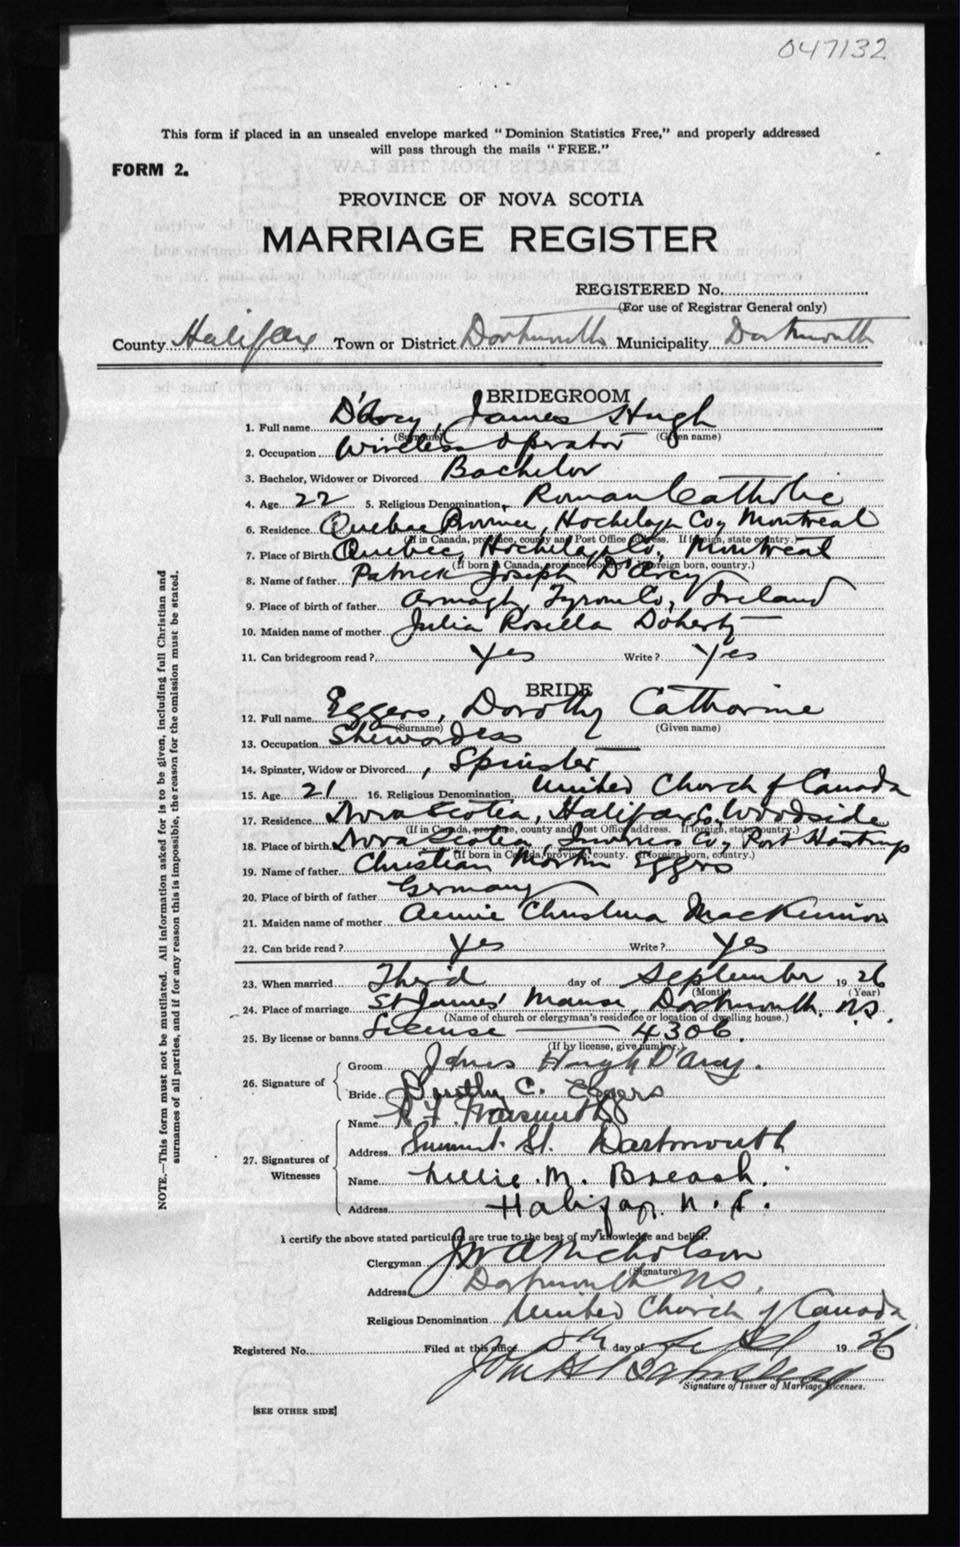 047132
This form if placed in an unsealed envelope marked "Dominion Statistics Free," and properly addressed
will pass through the mails "FREE."
FORM 2.
PROVINCE OF NOVA SCOTIA
MARRIAGE REGISTER
REGISTERED No.
(For use of Registrar General only)
County Halifax Town or District Dartmouth Municipality Dartmouth
BRIDEGROOM
1. Full name D'Arcy, James Hugh
(Surname) (Given name)
2. Occupation Wireless Operator
3. Bachelor, Widower or Divorced Bachelor
4. Age 22 5. Religious Denomination Roman Catholic
6. Residence Quebec Province, Hochelaga Co, Montreal
(If in Canada, province, county and Post Office address. If foreign, state country.)
7. Place of Birth Quebec, Hochelaga Co, Montreal
(If born in Canada, province, county. If foreign born, country.)
8. Name of father Patrick Joseph D'Arcy
9. Place of birth of father Armagh, Tyrone Co, Ireland
10. Maiden name of mother Julia Rosella Doherty
11. Can bridegroom read? Yes Write? Yes
BRIDE
12. Full name Eggers, Dorothy Catharine
(Surname) (Given name)
13. Occupation Stewardess
14. Spinster, Widow or Divorced Spinster
15. Age 21 16. Religious Denomination United Church of Canada
17. Residence Nova Scotia, Halifax Co, Woodside
(If in Canada, province, county and Post Office address. If foreign, state country.)
18. Place of birth Nova Scotia, Inverness Co, Port Hastings
(If born in Canada, province, county. If foreign born, country.)
19. Name of father Christian Martin Eggers
20. Place of birth of father Germany
21. Maiden name of mother Annie Christina MacKinnon
22. Can bride read? Yes Write? Yes
23. When married Third day of September 1926
(Month) (Year)
24. Place of marriage St James' Manse, Dartmouth, N.S.
(Name of church or clergyman's residence or location of dwelling house.)
25. By license or banns License 4306
(If by license, give number.)
26. Signature of
Groom James Hugh D'Arcy.
Bride Dorothy C. Eggers
27. Signatures of
Witnesses
Name
Address Summit St. Dartmouth
Name Nellie M.
Address Halifax, N.S.
I certify the above stated particulars are true to the best of my knowledge and belief.
Clergyman Nicholson
(Signature)
Address Dartmouth NS.
Religious Denomination United Church of Canada
Registered No. Filed at this office 8th day of Sept 1926
John
Signature of Issuer of Marriage Licenses.
[SEE OTHER SIDE]
NOTE.—This form must not be mutilated. All information asked for is to be given, including full Christian and
surnames of all parties, and if for any reason this is impossible, the reason for the omission must be stated.